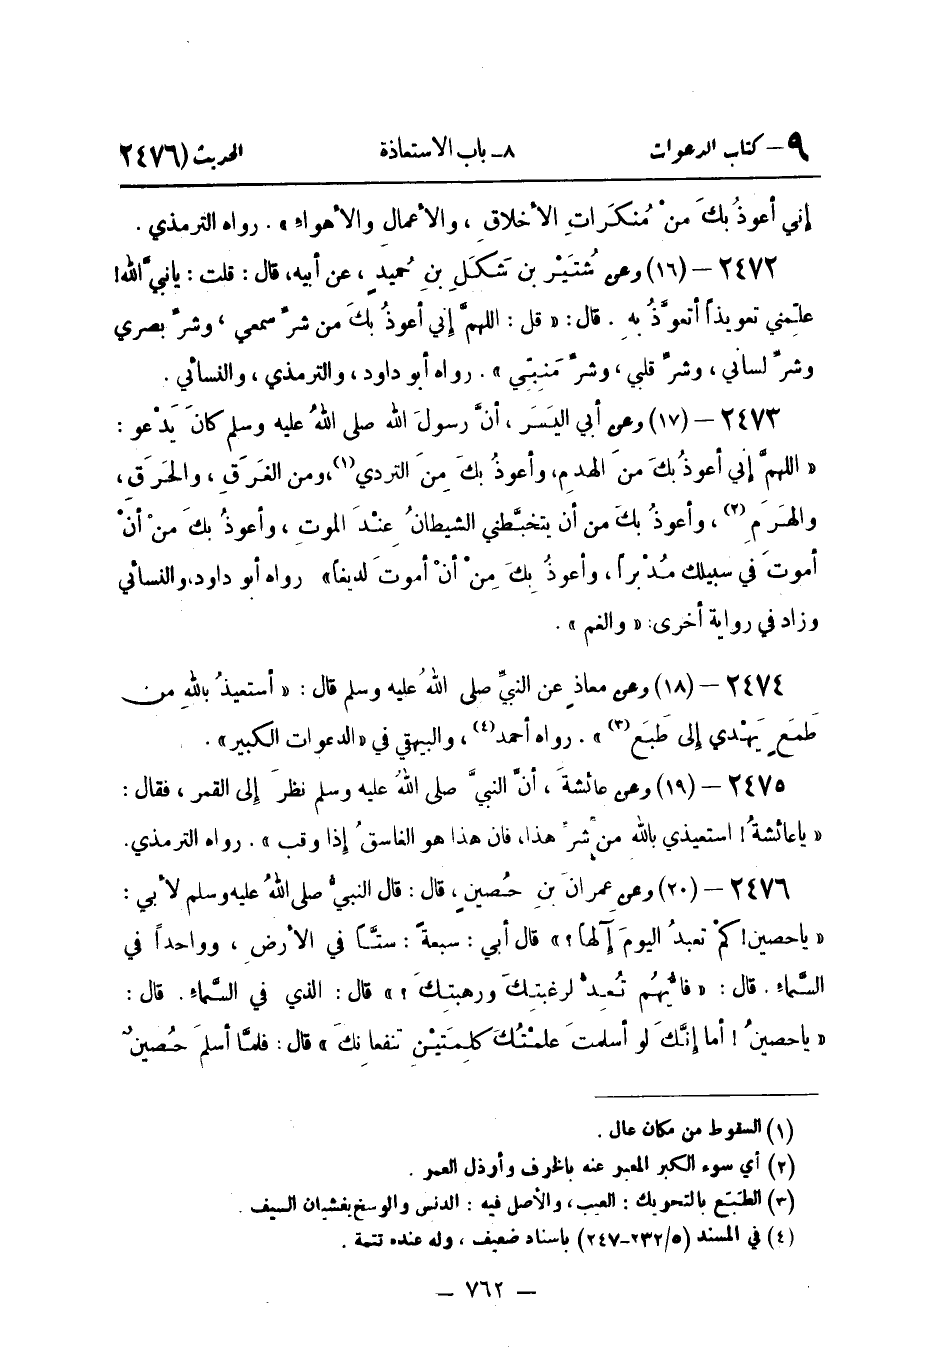 ٩ – كتاب الدعوات ٨ - باب الاستعاذة الحديث (٢٤٧٦
إني أعوذُ بكَ منْ مُنكَرَاتِ الأخلاقِ ، والأعمالِ والأهواءِ » . رواه الترمذي .
٢٤٧٢ – (١٦) وعن شُتَيْرِ بنِ شَكَلِ بنِ حُميدٍ ، عن أبيه، قال : قلت : يانبيَّ الله!
علِّمني تعويذاً أتعوَّذُ بهِ . قال : « قل : اللهمَّ إني أعوذُ بكَ من شرِّ سمعي ، وشرِّ بصري
وشرِّ لساني ، وشرِّ قلبي ، وشرِّ مَنيِّي » . رواه أبو داود ، والترمذي ، والنسائي .
٢٤٧٣ – (١٧) وعن أبي اليَسَر ، أنَّ رسولَ الله صلى اللهُ عليه وسلم كانَ يَدْعو :
« اللهمَّ إني أعوذُ بكَ منَ الهدمِ، وأعوذُ بكَ مِنَ التردي(١)،ومن الغَرَقِ ، والحَرَقِ ،
والهَرَمِ(٢) ، وأعوذُ بكَ من أن يتخبَّطني الشيطانُ عِندَ الموتِ ، وأعوذُ بكَ منْ أنْ
أموتَ في سبيلك مُدْبراً ، وأعوذُ بِكَ مِنْ أنْ أموتَ لديغاً» رواه أبو داود،والنسائي
وزاد في رواية أخرى: « والغم » .
٢٤٧٤ – (١٨) وعن معاذٍ عن النبيِّ صلى اللهُ عليه وسلم قال : « أستعيذُ باللهِ من
طَمَعٍ يَهْدي إلى طَبَعٍ(٣) » . رواه أحمد(٤) ، والبيهقي في «الدعوات الكبير» .
٢٤٧٥ – (١٩) وعن عائشةَ ، أنَّ النبيَّ صلى اللهُ عليه وسلم نظرَ إلى القمر ، فقال :
« ياعائشةُ! استعيذي بالله من شرِّ هذا، فان هذا هو الغاسقُ إذا وقب » . رواه الترمذي.
٢٤٧٦ – (٢٠) وعن عمرانَ بنِ حُصينٍ، قال : قال النبيُّ صلى اللهُ عليه وسلم لأبي :
« ياحصين! كمْ تعبدُ اليومَ إلهاً ؟» قال أبي : سبعةً : ستَّاً في الأرضِ ، وواحداً في
السَّماءِ . قال : « فايُّهُم تُعِدُّ لرغبتِكَ ورهبتِكَ ؟ » قال : الذي في السَّماءِ . قال :
« ياحصينُ ! أما إنَّكَ لو أسلمتَ علمْتُكَ كلِمتَيْنِ تنفعانِكَ » قال : فلمَّا أسلمَ حُصينٌ
(١) السقوط من مكان عال .
(٢) أي سوء الكبر المعبر عنه بالخرف وأرذل العمر .
(٣) الطبَع بالتحريك : العيب، والأصل فيه : الدنس والوسخ يغشيان السيف .
(٤) في المسند (٥/٢٣٢-٢٤٧) باسناد ضعيف ، وله عنده تتمة .
– ٧٦٢ –